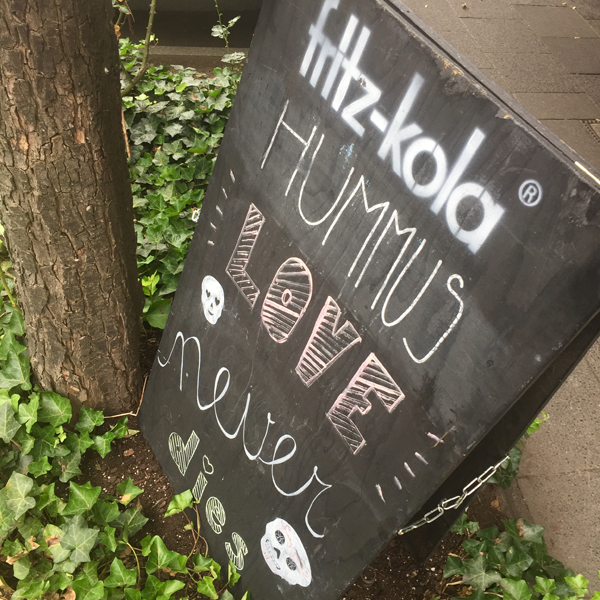 fritz-kola®
HUMMUS
LOVE
never
dies